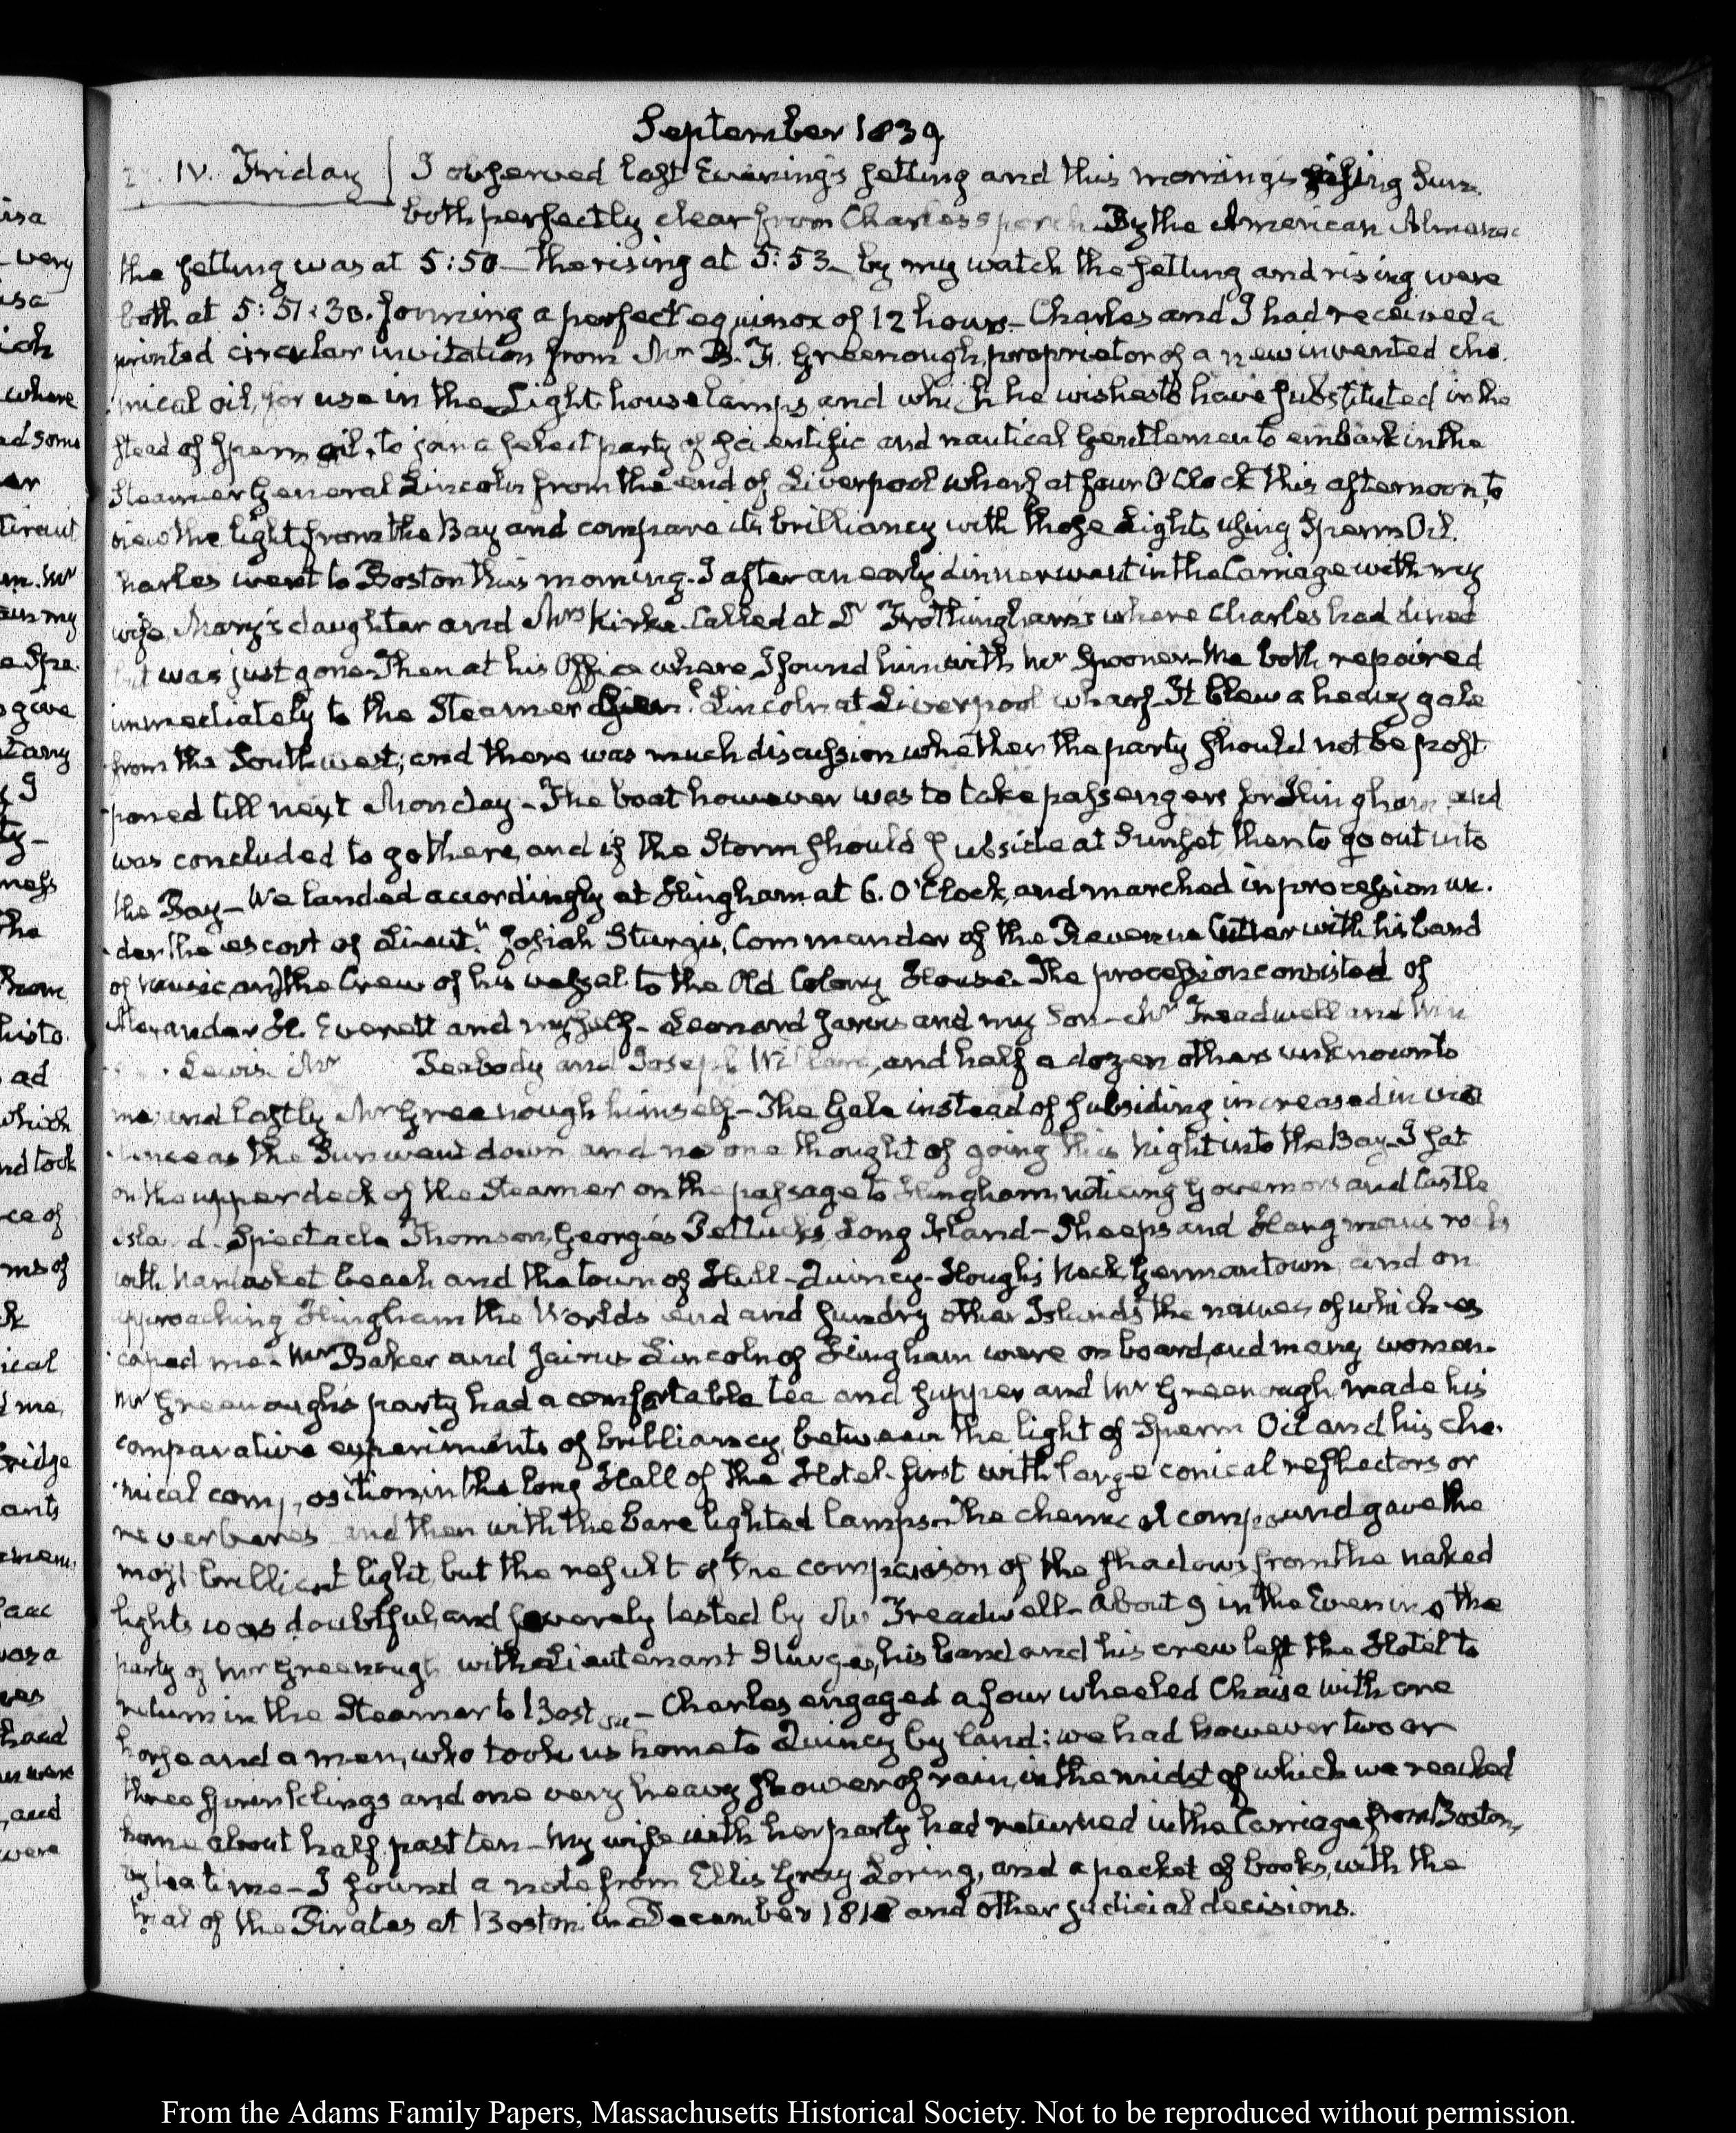 September 1839
IV. Friday I observed last Evening's setting and this morning's rising Sun.
both perfectly clear from Charles's porch. By the American Almanac
the setting was at 5:50 — the rising at 5:53 — by my watch the setting and rising were
both at 5:51:30. forming a perfect equinox of 12 hours — Charles and I had received a
printed circular invitation from Mr B. F. Greenough, proprietor of a new invented che-
mical oil, for use in the Light house lamps and which he wishes to have substituted in the
stead of Sperm oil, to join a select party of scientific and nautical Gentlemen to embark in the
Steamer General Lincoln from the end of Liverpool wharf at four O'Clock this afternoon, to
view the light from the Bay and compare its brilliancy with those Lights using Sperm Oil.
Charles went to Boston this morning. I after an early dinner went in the Carriage with my
wife, Mary's daughter and Mrs Kirke. Called at Dr Frothingham's where Charles had dined
but was just gone. Then at his Office where I found him with Mr Spooner — We both repaired
immediately to the Steamer Genl Lincoln at Liverpool wharf. It blew a heavy gale
from the Southwest; and there was much discussion whether the party should not be post
poned till next Monday — The boat however was to take passengers for Hingham, and
was concluded to go there, and if the Storm should subside at Sunset then to go out into
the Bay — We landed accordingly at Hingham at 6. O'Clock, and marched in procession un-
der the escort of Lieutt Josiah Sturgis, Commander of the Revenue Cutter with his band
of music, and the Crew of his vessel to the Old Colony House. The procession consisted of
Alexander H. Everett and myself — Leonard Jarvis and my Son — Mr Treadwell and
Lewis Mr Peabody and Joseph Willard, and half a dozen others unknown to
me, and lastly Mr Greenough himself — The Gale instead of subsiding increased in vio
lence as the Sun went down and no one thought of going this Night into the Bay — I sat
on the upper deck of the Steamer on the passage to Hingham, noticing Governors and Castle
Island. Spectacle Thomson, George's Pettucks, Long Island — Sheeps and Hangmans rocks
with Nantasket beach and the town of Hull — Quincy — Hough's Neck, Germantown, and on
approaching Hingham the Worlds end and sundry other Islands the names of which es
caped me. Mr Baker and Jairus Lincoln of Hingham were on board, and many women.
Mr Greenough's party had a comfortable tea and supper and Mr Greenough made his
comparative experiments of brilliancy, between the light of Sperm Oil and his che-
mical composition, in the long Hall of the Hotel. first with large conical reflectors or
reverberes and then with the bare lighted lamps. The chemical compound gave the
most brilliant light, but the result of the comparison of the shadows from the naked
lights was doubtful, and severely tested by Mr Treadwell — About 9 in the Evening the
party of Mr Greenough with Lieutenant Sturges, his band and his crew left the Hotel to
return in the Steamer to Boston — Charles engaged a four wheeled Chaise with one
horse and a man, who took us home to Quincy by land; we had however two or
three sprinklings and one very heavy shower of rain, in the midst of which we reached
home about half past ten — My wife with her party had returned in the Carriage from Boston,
by tea time — I found a note from Ellis Gray Loring, and a packet of books, with the
trial of the Pirates at Boston in December 1818 and other judicial decisions.
From the Adams Family Papers, Massachusetts Historical Society. Not to be reproduced without permission.